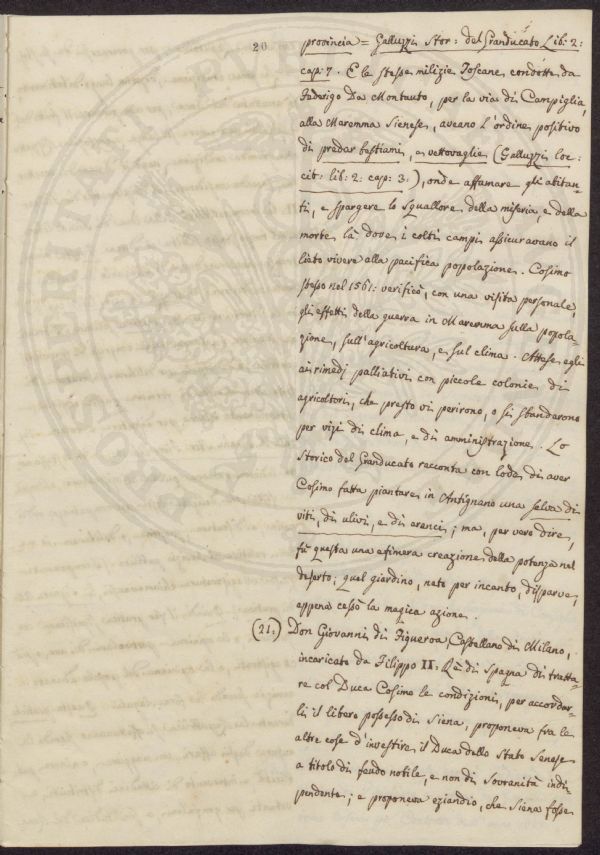 20
provincia = Galluzzi Stor: del Granducato Lib: 2:
cap: 7. E le stesse milizie Toscane condotte da
Federigo Da Montauto, per la via di Campiglia,
alla Maremma Sienese, aveano l'ordine positivo
di predar bestiami, e vettovaglie (Galluzzi loc:
cit: lib: 2: cap: 3:), onde affamare gli abitan-
ti, e spargere lo squallore della miseria, e della
morte là dove i colti campi assicuravano il
lieto vivere alla pacifica popolazione. Cosimo
stesso nel 1561: verificò, con una visita personale,
gli effetti della guerra in Maremma sulla popola-
zione, sull'agricoltura, e sul clima. Attese egli
ai rimedj palliativi con piccole colonie di
agricoltori, che presto vi perirono, o si sbandarono
per vizi di clima, e di amministrazione. Lo
Storico del Granducato racconta con lode di aver
Cosimo fatta piantare in Antignano una selva di
viti, di ulivi, e di aranci; ma, per vero dire,
fù questa una efimera creazione della potenza nel
deserto; quel giardino, nato per incanto, disparve,
appena cessò la magica azione.
(21:) Don Giovanni di Figueroa, Castellano di Milano,
incaricato da Filippo II: Rè di Spagna di tratta-
re col Duca Cosimo le condizioni, per accordar-
li il libero possesso di Siena, proponeva fra le
altre cose d'investire il Duca dello Stato Senese
a titolo di feudo nobile, e non di Sovranità indi-
pendente; e proponeva eziandio, che Siena fosse
PROSPERITATI PUBLICAE